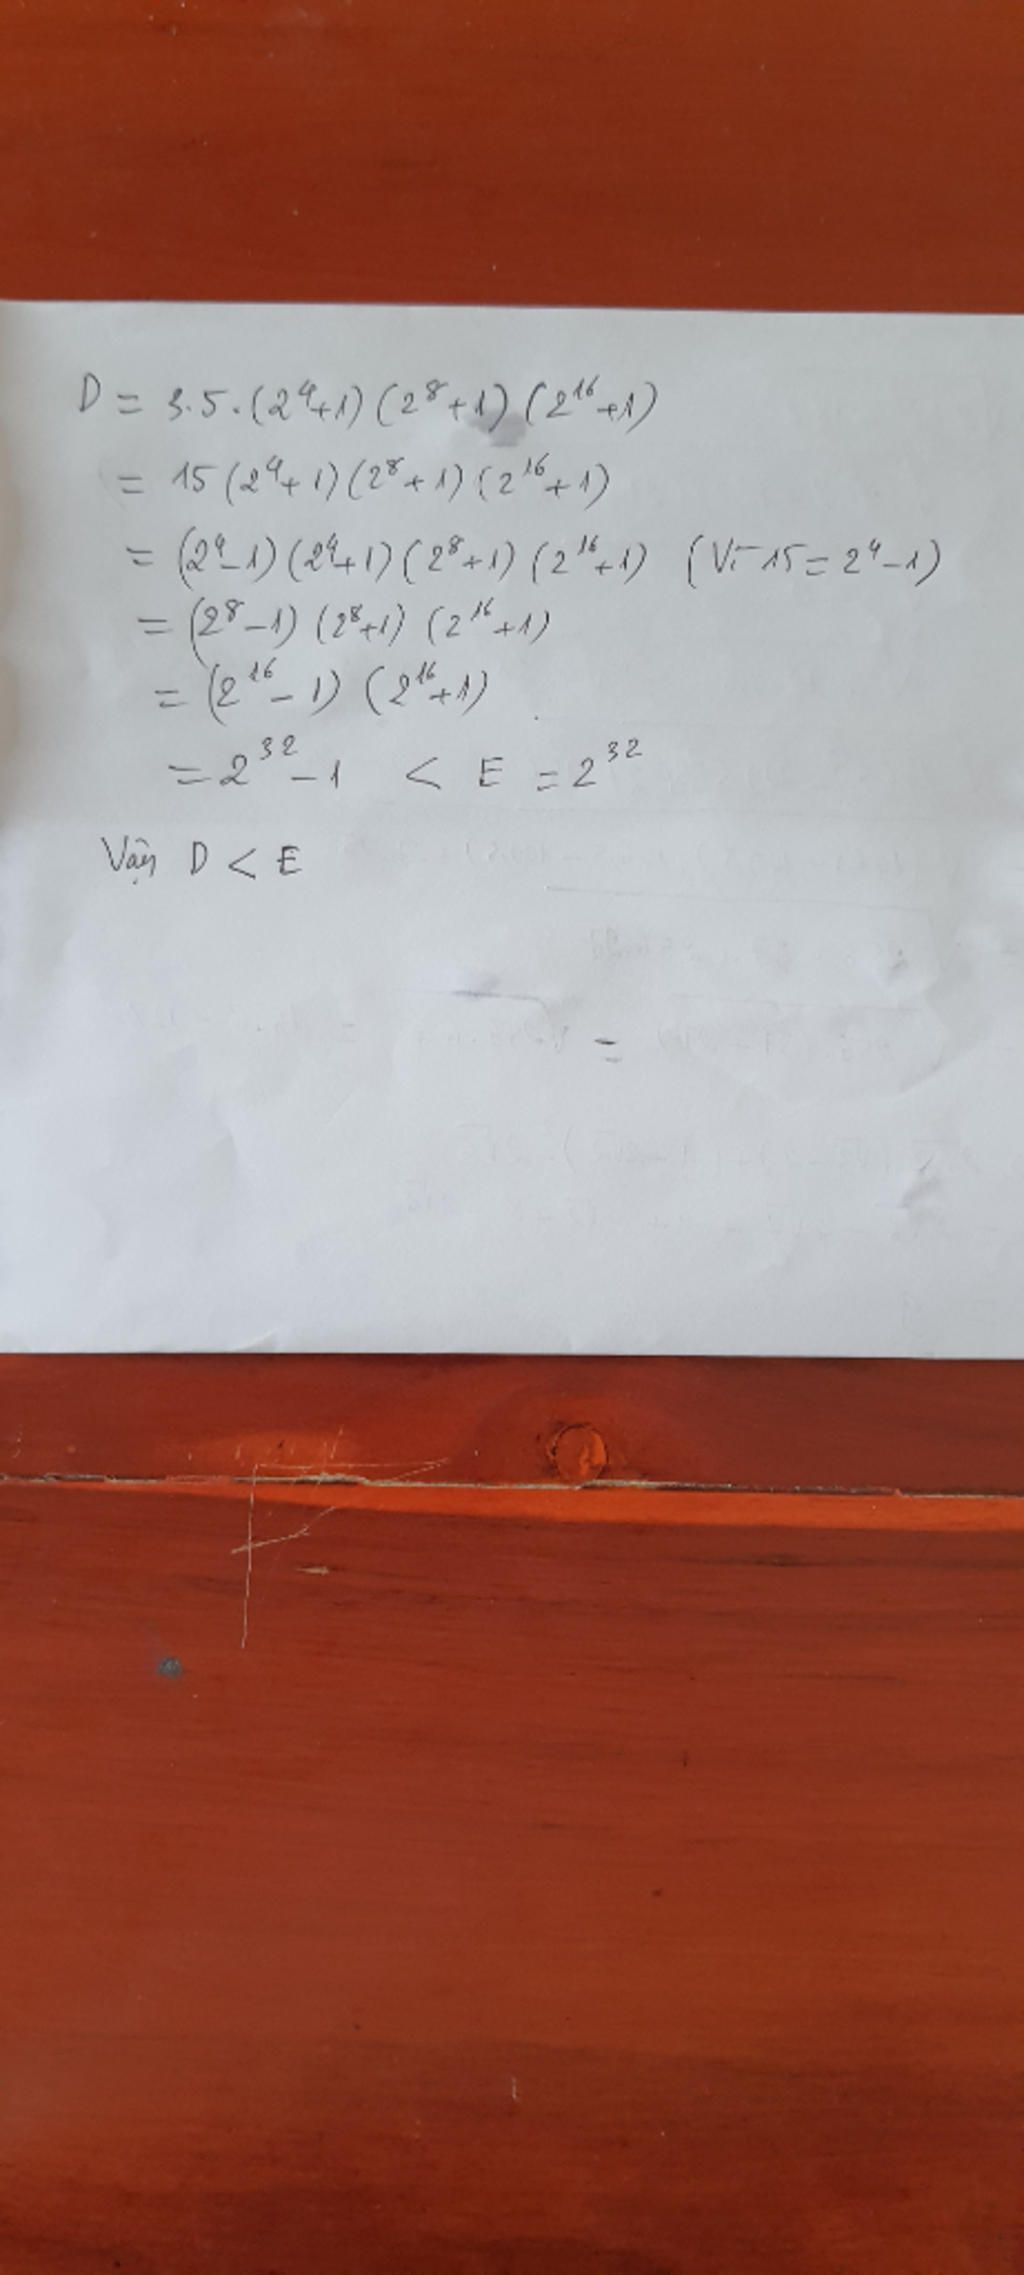 D = 3.5.(2⁴+1)(2⁸+1)(2¹⁶+1)
= 15(2⁴+1)(2⁸+1)(2¹⁶+1)
= (2⁴-1)(2⁴+1)(2⁸+1)(2¹⁶+1) (Vì 15 = 2⁴-1)
= (2⁸-1)(2⁸+1)(2¹⁶+1)
= (2¹⁶-1)(2¹⁶+1)
= 2³²-1 < E = 2³²
Vậy D < E
=